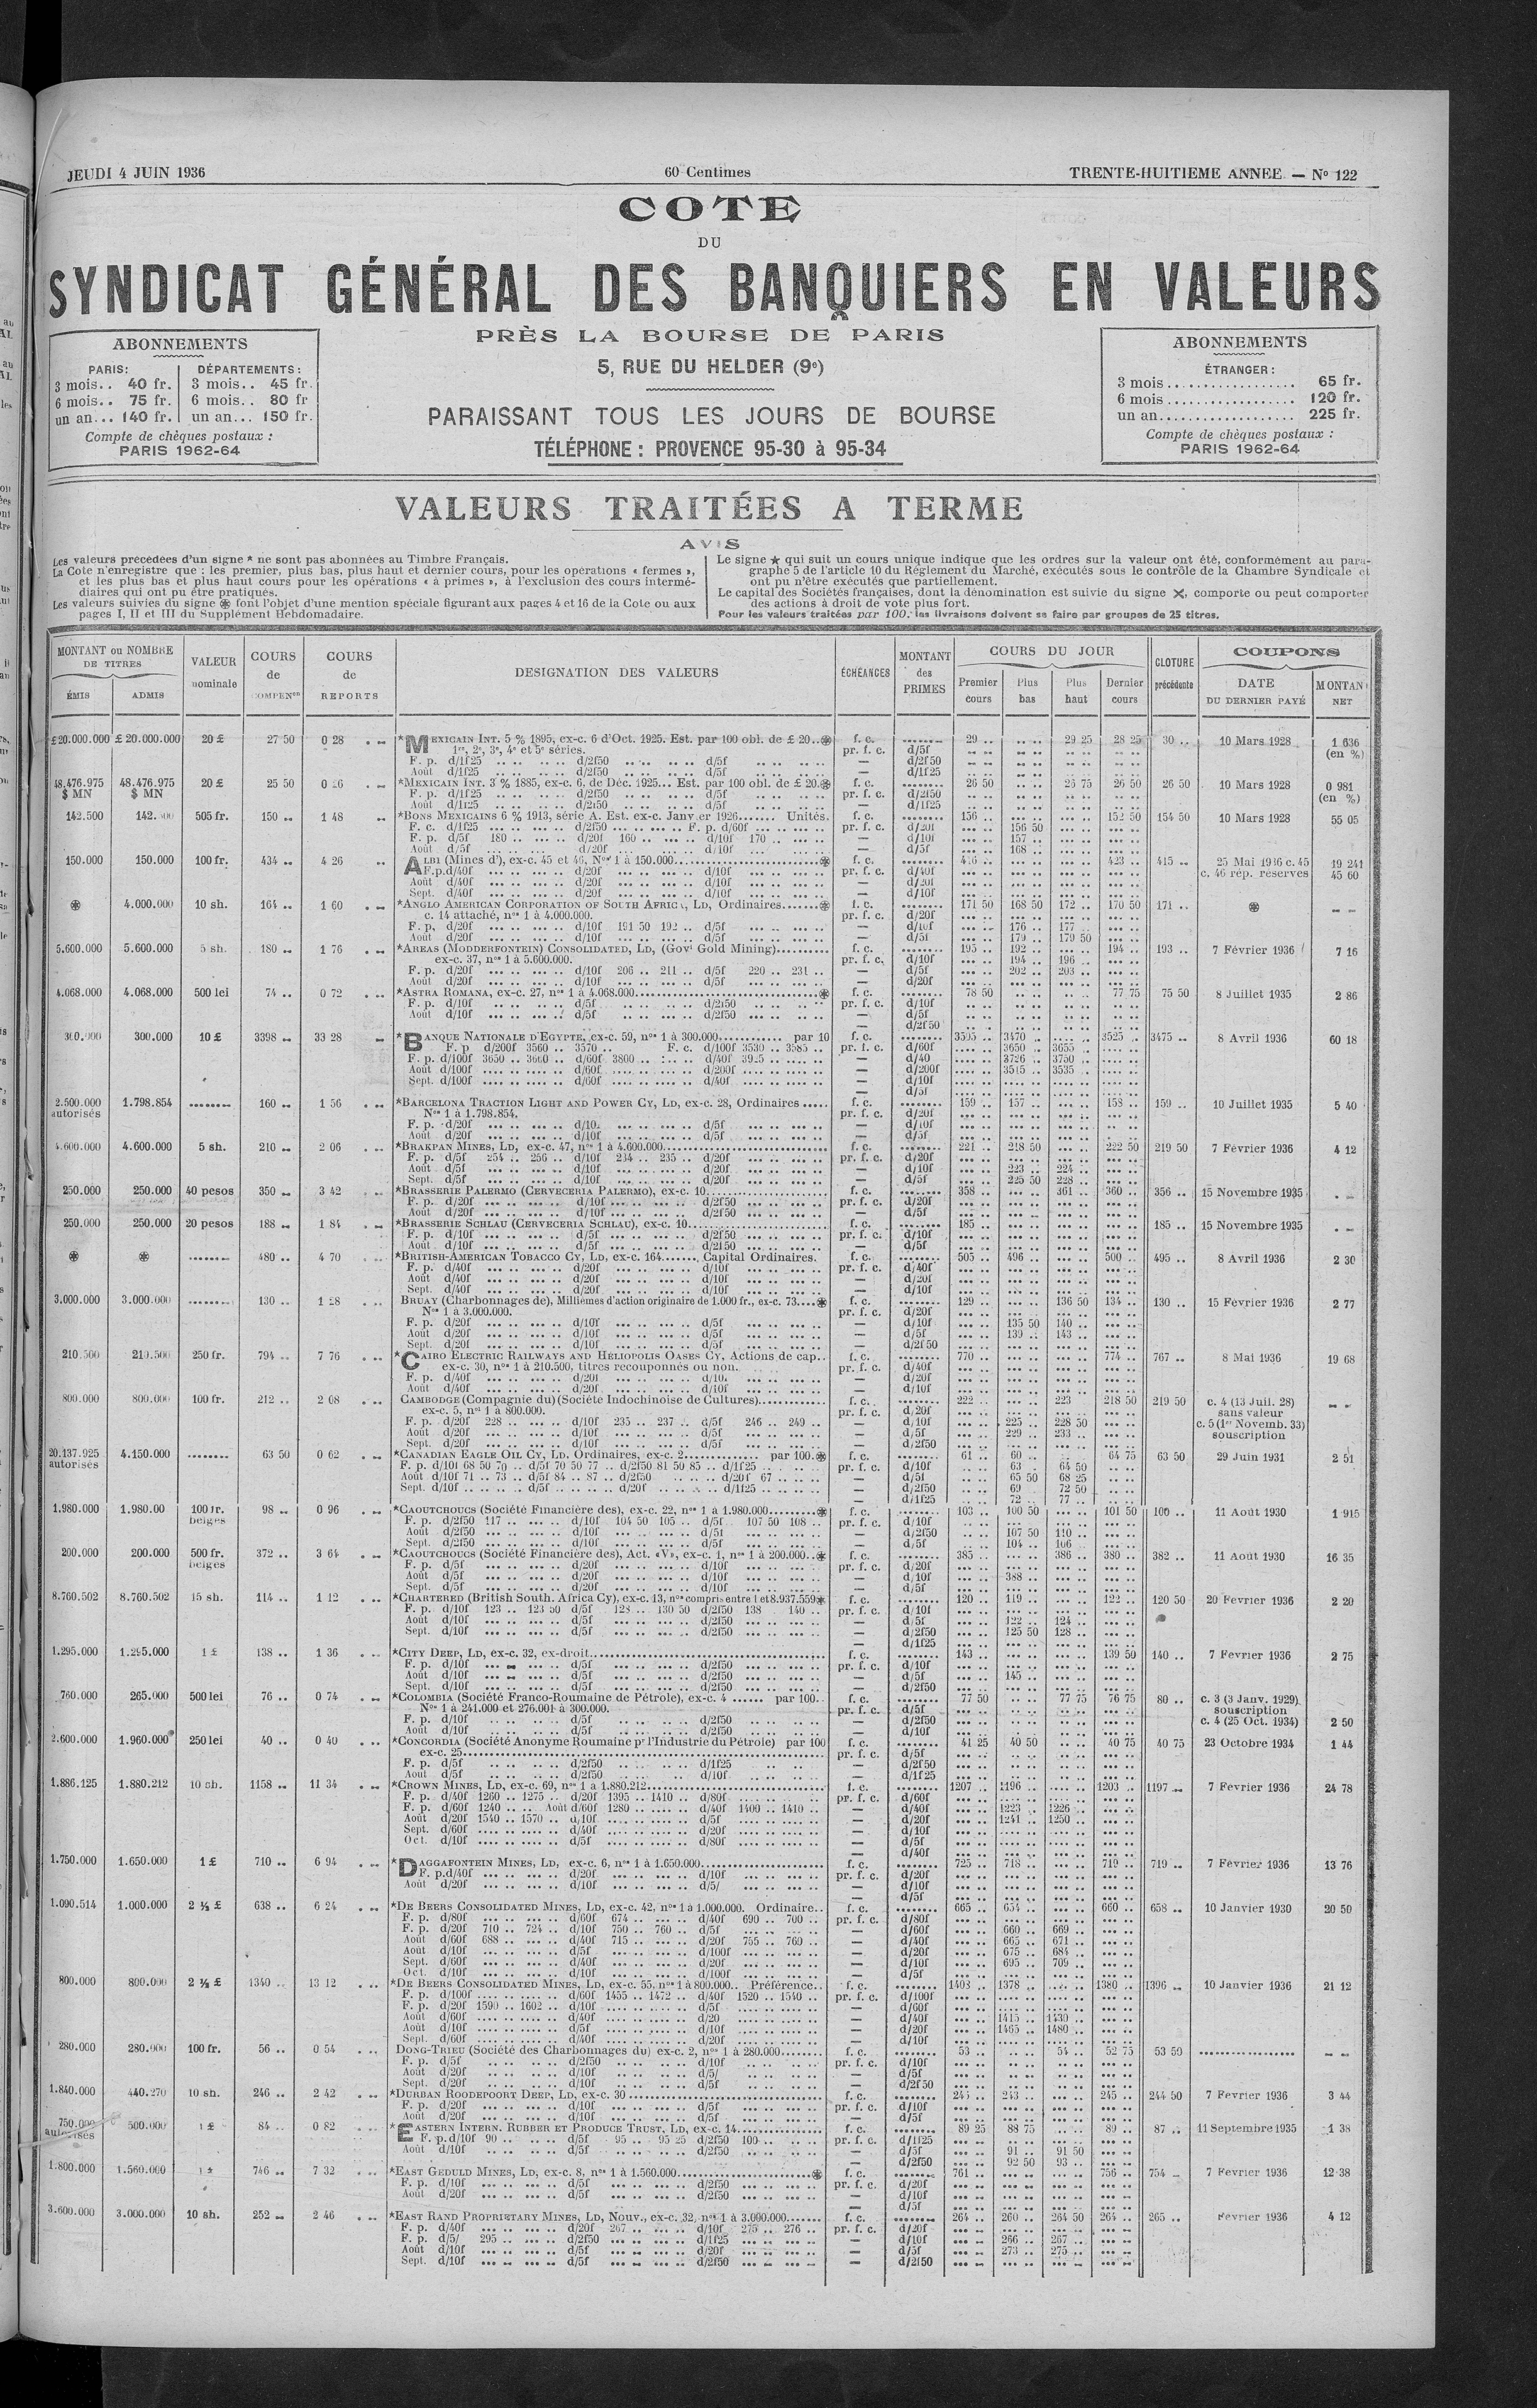 JEUDI 4 JUIN 1936 60 Centimes TRENTE-HUITIEME ANNEE. — Nº 122
COTE
DU
SYNDICAT GÉNÉRAL DES BANQUIERS EN VALEURS
PRÈS LA BOURSE DE PARIS
5, RUE DU HELDER (9e)
PARAISSANT TOUS LES JOURS DE BOURSE
TÉLÉPHONE : PROVENCE 95-30 à 95-34
ABONNEMENTS
PARIS: DÉPARTEMENTS:
3 mois.. 40 fr. 3 mois.. 45 fr.
6 mois.. 75 fr. 6 mois.. 80 fr
un an... 140 fr. un an... 150 fr.
Compte de chèques postaux :
PARIS 1962-64
ABONNEMENTS
ÉTRANGER :
3 mois.................. 65 fr.
6 mois.................. 120 fr.
un an................... 225 fr.
Compte de chèques postaux :
PARIS 1962-64
VALEURS TRAITÉES A TERME
AVIS
Les valeurs précédées d'un signe * ne sont pas abonnées au Timbre Français.
La Cote n'enregistre que : les premier, plus bas, plus haut et dernier cours, pour les opérations « fermes »,
et les plus bas et plus haut cours pour les opérations « à primes », à l'exclusion des cours intermé-
diaires qui ont pu être pratiqués.
Les valeurs suivies du signe ⊛ font l'objet d'une mention spéciale figurant aux pages 4 et 16 de la Cote ou aux
pages I, II et III du Supplément Hebdomadaire.
Le signe ★ qui suit un cours unique indique que les ordres sur la valeur ont été, conformément au para-
graphe 5 de l'article 10 du Règlement du Marché, exécutés sous le contrôle de la Chambre Syndicale et
ont pu n'être exécutés que partiellement.
Le capital des Sociétés françaises, dont la dénomination est suivie du signe ✕, comporte ou peut comporter
des actions à droit de vote plus fort.
Pour les valeurs traitées par 100, les livraisons doivent se faire par groupes de 25 titres.
MONTANT ou NOMBRE DE TITRES
ÉMIS ADMIS
VALEUR nominale
COURS de COMPENon
COURS de REPORTS
DESIGNATION DES VALEURS
ÉCHÉANCES
MONTANT des PRIMES
COURS DU JOUR
Premier cours Plus bas Plus haut Dernier cours
CLOTURE précédente
COUPONS
DATE DU DERNIER PAYÉ
MONTANT NET
£20.000.000 £ 20.000.000 20 £ 27 50 0 28 *MEXICAIN INT. 5 % 1895, ex-c. 6 d'Oct. 1925. Est. par 100 obl. de £ 20..⊛ f. c. 29 .. 29 25 28 25 30 .. 10 Mars 1928 1 636
1re, 2e, 3e, 4e et 5e séries. pr. f. c. d/5f (en %)
F. p. d/1f25 d/2f50 d/5f — d/2f50
Août d/1f25 d/2f50 d/5f — d/1f25
48.476.975 $ MN 48.476.975 $ MN 20 £ 25 50 0 26 *MEXICAIN INT. 3 % 1885, ex-c. 6, de Déc. 1925... Est. par 100 obl. de £ 20.⊛ f. c. 26 50 26 75 26 50 26 50 10 Mars 1928 0 981 (en %)
142.500 505 fr. 150 .. 1 48 *BONS MEXICAINS 6 % 1913, série A. Est. ex-c. Janvier 1926....... Unités. f. c. 156 .. 152 50 154 50 10 Mars 1928 55 05
F. c. d/1f25 d/2f50 F. p. d/60f pr. f. c. d/20f 156 50
F. p. d/5f 180 .. d/20f 160 .. d/10f 170 .. — d/10f 157 ..
Août d/5f d/20f d/10f — d/5f 168 ..
150.000 150.000 100 fr. 434 .. 4 26 ALBI (Mines d'), ex-c. 45 et 46, Nos 1 à 150.000 ⊛ f. c. 416 .. 423 .. 415 .. 25 Mai 1936 c. 45 19 241
c. 46 rép. réserves 45 60
⊛ 4.000.000 10 sh. 164 .. 1 60 *ANGLO AMERICAN CORPORATION OF SOUTH AFRICA, LD, Ordinaires.......⊛ f. c. 171 50 168 50 172 .. 170 50 171 .. ⊛
c. 14 attaché, nos 1 à 4.000.000. pr. f. c. d/20f
F. p. d/20f d/10f 191 50 192 .. d/5f — d/10f 176 .. 177 ..
Août d/20f d/10f d/5f — d/5f 179 .. 179 50
5.600.000 5.600.000 5 sh. 180 .. 1 76 *AREAS (MODDERFONTEIN) CONSOLIDATED, LD, (Govt Gold Mining) f. c. 195 .. 192 .. 194 .. 193 .. 7 Février 1936 7 16
ex-c. 37, nos 1 à 5.600.000. pr. f. c. d/10f 194 .. 196 ..
F. p. d/20f d/10f 206 .. 211 .. d/5f 220 .. 231 .. — d/5f 202 .. 203 ..
4.068.000 4.068.000 500 lei 74 .. 0 72 *ASTRA ROMANA, ex-c. 27, nos 1 à 4.068.000 ⊛ f. c. 78 50 77 75 75 50 8 Juillet 1935 2 86
300.000 10 £ 3398 .. 33 28 *BANQUE NATIONALE D'EGYPTE, ex-c. 59, nos 1 à 300.000 par 10 f. c. 3595 .. 3470 .. 3525 .. 3475 .. 8 Avril 1936 60 18
F. p d/200f 3560 .. 3570 .. F. c. d/100f 3530 .. 3585 .. pr. f. c. d/60f 3650 .. 3655 ..
F. p. d/100f 3650 .. 3660 .. d/60f 3800 .. d/40f 3925 — d/40 3726 .. 3750 ..
Août d/100f d/60f d/200f — d/200f 3515 .. 3535 ..
Sept. d/100f d/60f d/40f — d/10f
2.500.000 autorisés 1.798.854 160 .. 1 56 *BARCELONA TRACTION LIGHT AND POWER CY, LD, ex-c. 28, Ordinaires f. c. 159 .. 157 .. 158 .. 159 .. 10 Juillet 1935 5 40
Nos 1 à 1.798.854.
4.600.000 4.600.000 5 sh. 210 .. 2 06 *BRAKPAN MINES, LD, ex-c. 47, nos 1 à 4.600.000 f. c. 221 .. 218 50 222 50 219 50 7 Février 1936 4 12
F. p. d/5f 254 .. 256 .. d/10f 234 .. 235 .. d/20f pr. f. c. d/20f
Août d/5f d/10f d/20f — d/10f 223 .. 224 ..
Sept. d/5f d/10f d/20f — d/5f 225 50 228 ..
250.000 250.000 40 pesos 350 .. 3 42 *BRASSERIE PALERMO (CERVECERIA PALERMO), ex-c. 10 f. c. 358 .. 361 .. 360 .. 356 .. 15 Novembre 1935
250.000 250.000 20 pesos 188 .. 1 84 *BRASSERIE SCHLAU (CERVECERIA SCHLAU), ex-c. 10 f. c. 185 .. 185 .. 15 Novembre 1935
⊛ ⊛ 480 .. 4 70 *BRITISH-AMERICAN TOBACCO CY, LD, ex-c. 164....... Capital Ordinaires. f. c. 505 .. 496 .. 500 .. 495 .. 8 Avril 1936 2 30
3.000.000 3.000.000 130 .. 1 28 BRUAY (Charbonnages de), Millièmes d'action originaire de 1.000 fr., ex-c. 73....⊛ f. c. 129 .. 136 50 134 .. 130 .. 15 Février 1936 2 77
Nos 1 à 3.000.000. pr. f. c. d/20f
F. p. d/20f d/10f d/5f — d/10f 135 50 140 ..
Août d/20f d/10f d/5f — d/5f 139 .. 143 ..
210.500 210.500 250 fr. 794 .. 7 76 *CAIRO ELECTRIC RAILWAYS AND HÉLIOPOLIS OASES CY, Actions de cap.. f. c. 770 .. 774 .. 767 .. 8 Mai 1936 19 68
ex-c. 30, nos 1 à 210.500, titres recouponnés ou non.
800.000 800.000 100 fr. 212 .. 2 08 CAMBODGE (Compagnie du) (Société Indochinoise de Cultures) f. c. 222 .. 223 218 50 219 50 c. 4 (13 Juil. 28)
ex-c. 5, nos 1 à 800.000. sans valeur
F. p. d/20f 228 .. d/10f 235 .. 237 .. d/5f 246 .. 249 .. — d/10f 225 .. 228 50 c. 5 (1er Novemb. 33)
Août d/20f d/10f d/5f — d/5f 229 .. 233 .. souscription
20.137.925 autorisés 4.150.000 63 50 0 62 *CANADIAN EAGLE OIL CY, LD. Ordinaires, ex-c. 2 par 100.⊛ f. c. 61 .. 60 .. 64 75 63 50 29 Juin 1931 2 51
F. p. d/10f 68 50 70 .. d/5f 70 50 77 .. d/2f50 81 50 85 .. d/1f25 pr. f. c. d/10f 63 .. 64 50
Août d/10f 71 .. 73 .. d/5f 84 .. 87 .. d/2f50 d/20f 67 .. — d/5f 65 50 68 25
Sept. d/10f d/5f d/20f d/1f25 — d/2f50 69 72 50
— d/1f25 72 .. 77 ..
1.980.000 1.980.00 100 fr. belges 98 .. 0 96 *CAOUTCHOUCS (Société Financière des), ex-c. 22, nos 1 à 1.980.000 ⊛ f. c. 103 .. 100 50 101 50 100 .. 11 Août 1930 1 915
F. p. d/2f50 117 .. d/10f 104 50 105 .. d/5f 107 50 108 .. pr. f. c. d/10f
Août d/2f50 d/10f d/5f — d/2f50 107 50 110 ..
Sept. d/2f50 d/10f d/5f — d/5f 104 .. 106
200.000 200.000 500 fr. belges 372 .. 3 64 *CAOUTCHOUCS (Société Financière des), Act. «V», ex-c. 1, nos 1 à 200.000..⊛ f. c. 385 .. 386 .. 380 .. 382 .. 11 Août 1930 16 35
Août d/5f d/20f d/10f — d/10f 388 ..
8.760.502 8.760.502 15 sh. 114 .. 1 12 *CHARTERED (British South. Africa Cy), ex-c. 13, nos compris entre 1 et 8.937.559⊛ f. c. 120 .. 119 .. 122 .. 120 50 20 Février 1936 2 20
F. p. d/10f 123 .. 123 50 d/5f 128 .. 130 50 d/2f50 138 140 .. pr. f. c. d/10f
Août d/10f d/5f d/2f50 — d/5f 122 .. 124 ..
Sept. d/10f d/5f d/2f50 — d/2f50 125 50 128 ..
1.295.000 1.295.000 1 £ 138 .. 1 36 *CITY DEEP, LD, ex-c. 32, ex-droit f. c. 143 .. 139 50 140 .. 7 Février 1936 2 75
Août d/10f d/5f d/2f50 — d/5f 145 ..
760.000 265.000 500 lei 76 .. 0 74 *COLOMBIA (Société Franco-Roumaine de Pétrole), ex-c. 4 ...... par 100. f. c. 77 50 77 75 76 75 80 .. c. 3 (3 Janv. 1929)
Nos 1 à 241.000 et 276.001 à 300.000. souscription
c. 4 (25 Oct. 1934) 2 50
2.600.000 1.960.000 250 lei 40 .. 0 40 *CONCORDIA (Société Anonyme Roumaine pr l'Industrie du Pétrole) par 100 f. c. 41 25 40 50 40 75 40 75 23 Octobre 1934 1 44
ex-c. 25
1.886.125 1.880.212 10 sh. 1158 .. 11 34 *CROWN MINES, LD, ex-c. 69, nos 1 à 1.880.212 f. c. 1207 .. 1196 .. 1203 .. 1197 .. 7 Février 1936 24 78
F. p. d/40f 1260 .. 1275 .. d/20f 1395 .. 1410 .. d/80f pr. f. c. d/60f
F. p. d/60f 1240 .. Août d/60f 1280 .. d/40f 1400 .. 1410 .. — d/40f 1223 .. 1226 ..
Août d/20f 1540 .. 1570 .. d/10f d/5f — d/20f 1241 .. 1250 ..
Sept. d/60f d/40f d/20f — d/10f
Oct. d/10f d/5f d/80f — d/5f
1.750.000 1.650.000 1 £ 710 .. 6 94 *DAGGAFONTEIN MINES, LD, ex-c. 6, nos 1 à 1.650.000 f. c. 725 .. 718 .. 719 .. 719 .. 7 Février 1936 13 76
1.090.514 1.000.000 2 ½ £ 638 .. 6 24 *DE BEERS CONSOLIDATED MINES, LD, ex-c. 42, nos 1 à 1.000.000. Ordinaire.. f. c. 665 .. 654 .. 660 .. 658 .. 10 Janvier 1930 20 50
F. p. d/80f d/60f 674 .. d/40f 690 .. 700 .. pr. f. c. d/80f
F. p. d/20f 710 .. 724 .. d/10f 750 .. 760 .. d/5f — d/60f 660 .. 669 ..
Août d/60f 688 .. d/40f 715 .. d/20f 755 .. 760 .. — d/40f 665 .. 671 ..
Août d/10f d/5f d/100f — d/20f 675 .. 684 ..
Sept. d/60f d/40f d/20f — d/10f 695 .. 709 ..
800.000 800.000 2 ½ £ 1340 .. 13 12 *DE BEERS CONSOLIDATED MINES, LD, ex-c. 55, nos 1 à 800.000.. Préférence.. f. c. 1403 .. 1378 .. 1380 .. 1396 .. 10 Janvier 1936 21 12
F. p. d/100f d/60f 1455 .. 1472 .. d/40f 1520 .. 1540 .. pr. f. c. d/100f
F. p. d/20f 1590 .. 1602 .. d/10f d/5f — d/60f
Août d/60f d/40f d/20 — d/40f 1415 .. 1430 ..
Août d/10f d/5f d/10f — d/20f 1465 .. 1480 ..
280.000 280.000 100 fr. 56 .. 0 54 DONG-TRIEU (Société des Charbonnages du) ex-c. 2, nos 1 à 280.000 f. c. 53 .. 54 .. 52 75 53 50
1.840.000 440.270 10 sh. 246 .. 2 42 *DURBAN ROODEPOORT DEEP, LD, ex-c. 30 f. c. 245 .. 243 .. 245 .. 244 50 7 Février 1936 3 44
750.000 autorisés 500.000 1 £ 84 .. 0 82 *EASTERN INTERN. RUBBER ET PRODUCE TRUST, LD, ex-c. 14 f. c. 89 25 88 75 89 .. 87 .. 11 Septembre 1935 1 38
F. p. d/10f 90 .. d/5f 95 .. 95 25 d/2f50 100 .. pr. f. c. d/1f25
Août d/10f d/5f d/2f50 — d/5f 91 .. 91 50
— d/2f50 92 50 93 ..
1.800.000 1.560.000 1 £ 746 .. 7 32 *EAST GEDULD MINES, LD, ex-c. 8, nos 1 à 1.560.000 ⊛ f. c. 761 .. 756 .. 754 .. 7 Février 1936 12 38
3.600.000 3.000.000 10 sh. 252 .. 2 46 *EAST RAND PROPRIETARY MINES, LD, Nouv., ex-c. 32, nos 1 à 3.000.000 f. c. 264 .. 260 .. 264 50 264 .. 265 .. Février 1936 4 12
F. p. d/40f d/20f 267 .. d/10f 275 .. 276 .. pr. f. c. d/20f
F. p. d/5/ 295 .. d/2f50 d/1f25 — d/10f 266 .. 267 ..
Août d/10f d/5f d/20f — d/5f 273 .. 275 ..
Sept. d/10f d/5f d/2f50 — d/2f50